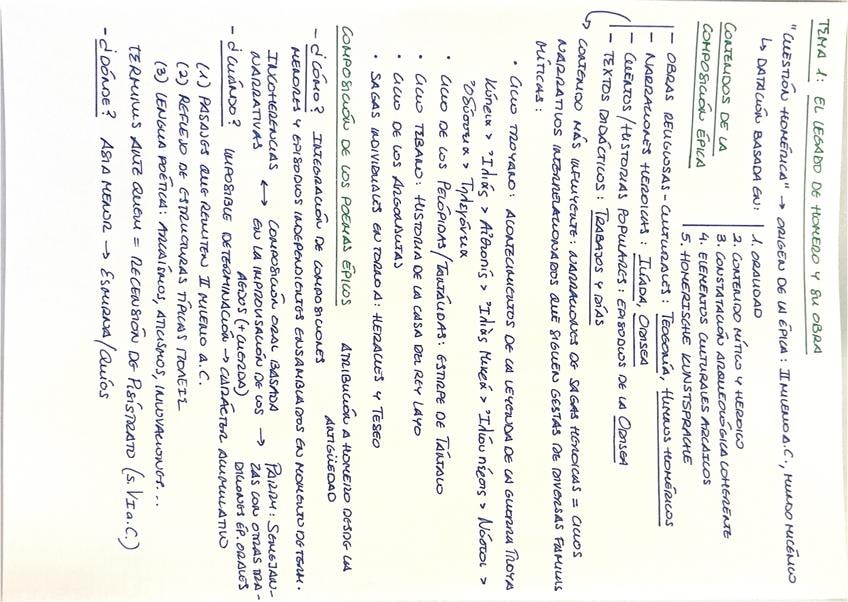 TEMA 1: EL LEGADO DE HOMERO Y SU OBRA
"CUESTIÓN HOMÉRICA" → ORIGEN DE LA ÉPICA: II MILENIO A.C., MUNDO MICÉNICO
↳ DATACIÓN BASADA EN:
1. ORALIDAD
2. CONTENIDO MÍTICO Y HEROICO
3. CONSTATACIÓN ARQUEOLÓGICA COHERENTE
4. ELEMENTOS CULTURALES ARCAICOS
5. HOMERISCHE KUNSTSPRACHE
CONTENIDOS DE LA
COMPOSICIÓN ÉPICA
- OBRAS RELIGIOSAS - CULTURALES: TEOGONÍA, HIMNOS HOMÉRICOS
- NARRACIONES HEROICAS: ILÍADA, ODISEA
- CUENTOS/HISTORIAS POPULARES: EPISODIOS DE LA ODISEA
- TEXTOS DIDÁCTICOS: TRABAJOS Y DÍAS
CONTENIDO MÁS INFLUYENTE: NARRACIONES DE SAGAS HEROICAS = CICLOS
NARRATIVOS INTERRELACIONADOS QUE SIGUEN GESTAS DE DIVERSAS FAMILIAS
MÍTICAS:
• CICLO TROYANO: ACONTECIMIENTOS DE LA LEYENDA DE LA GUERRA TROYA
Κύπρια > Ἰλιάς > Αἰθιοπίς > Ἰλιὰς Μικρά > Ἰλίου πέρσις > Νόστοι >
Ὀδύσσεια > Τηλεγόνεια
• CICLO DE LOS PELÓPIDAS/TANTÁLIDAS: ESTIRPE DE TÁNTALO
• CICLO TEBANO: HISTORIA DE LA CASA DEL REY LAYO
• CICLO DE LOS ARGONAUTAS
• SAGAS INDIVIDUALES EN TORNO A: HERACLES Y TESEO
COMPOSICIÓN DE LOS POEMAS ÉPICOS
ATRIBUCIÓN A HOMERO DESDE LA
ANTIGÜEDAD
- ¿CÓMO? INTEGRACIÓN DE COMPOSICIONES
MENORES Y EPISODIOS INDEPENDIENTES ENSAMBLADOS EN MOMENTO DETERM.
INCOHERENCIAS NARRATIVAS ↔ COMPOSICIÓN ORAL BASADA EN LA IMPROVISACIÓN DE LOS AEDOS (+ CUERDA) → PARRY: SEMEJANZAS CON OTRAS TRADICIONES ÉP. ORALES
- ¿CUÁNDO? IMPOSIBLE DETERMINACIÓN → CARÁCTER ACUMULATIVO
(1) PASAJES QUE REMITEN II MILENIO A.C.
(2) REFLEJO DE ESTRUCTURAS TÍPICAS ΠΟΛΕΙΣ
(3) LENGUA POÉTICA: ARCAÍSMOS, ATICISMOS, INNOVACIONES...
TERMINUS ANTE QUEM = RECENSIÓN DE PISÍSTRATO (S. VI a.C.)
- ¿DÓNDE? ASIA MENOR → ESMIRNA/QUÍOS